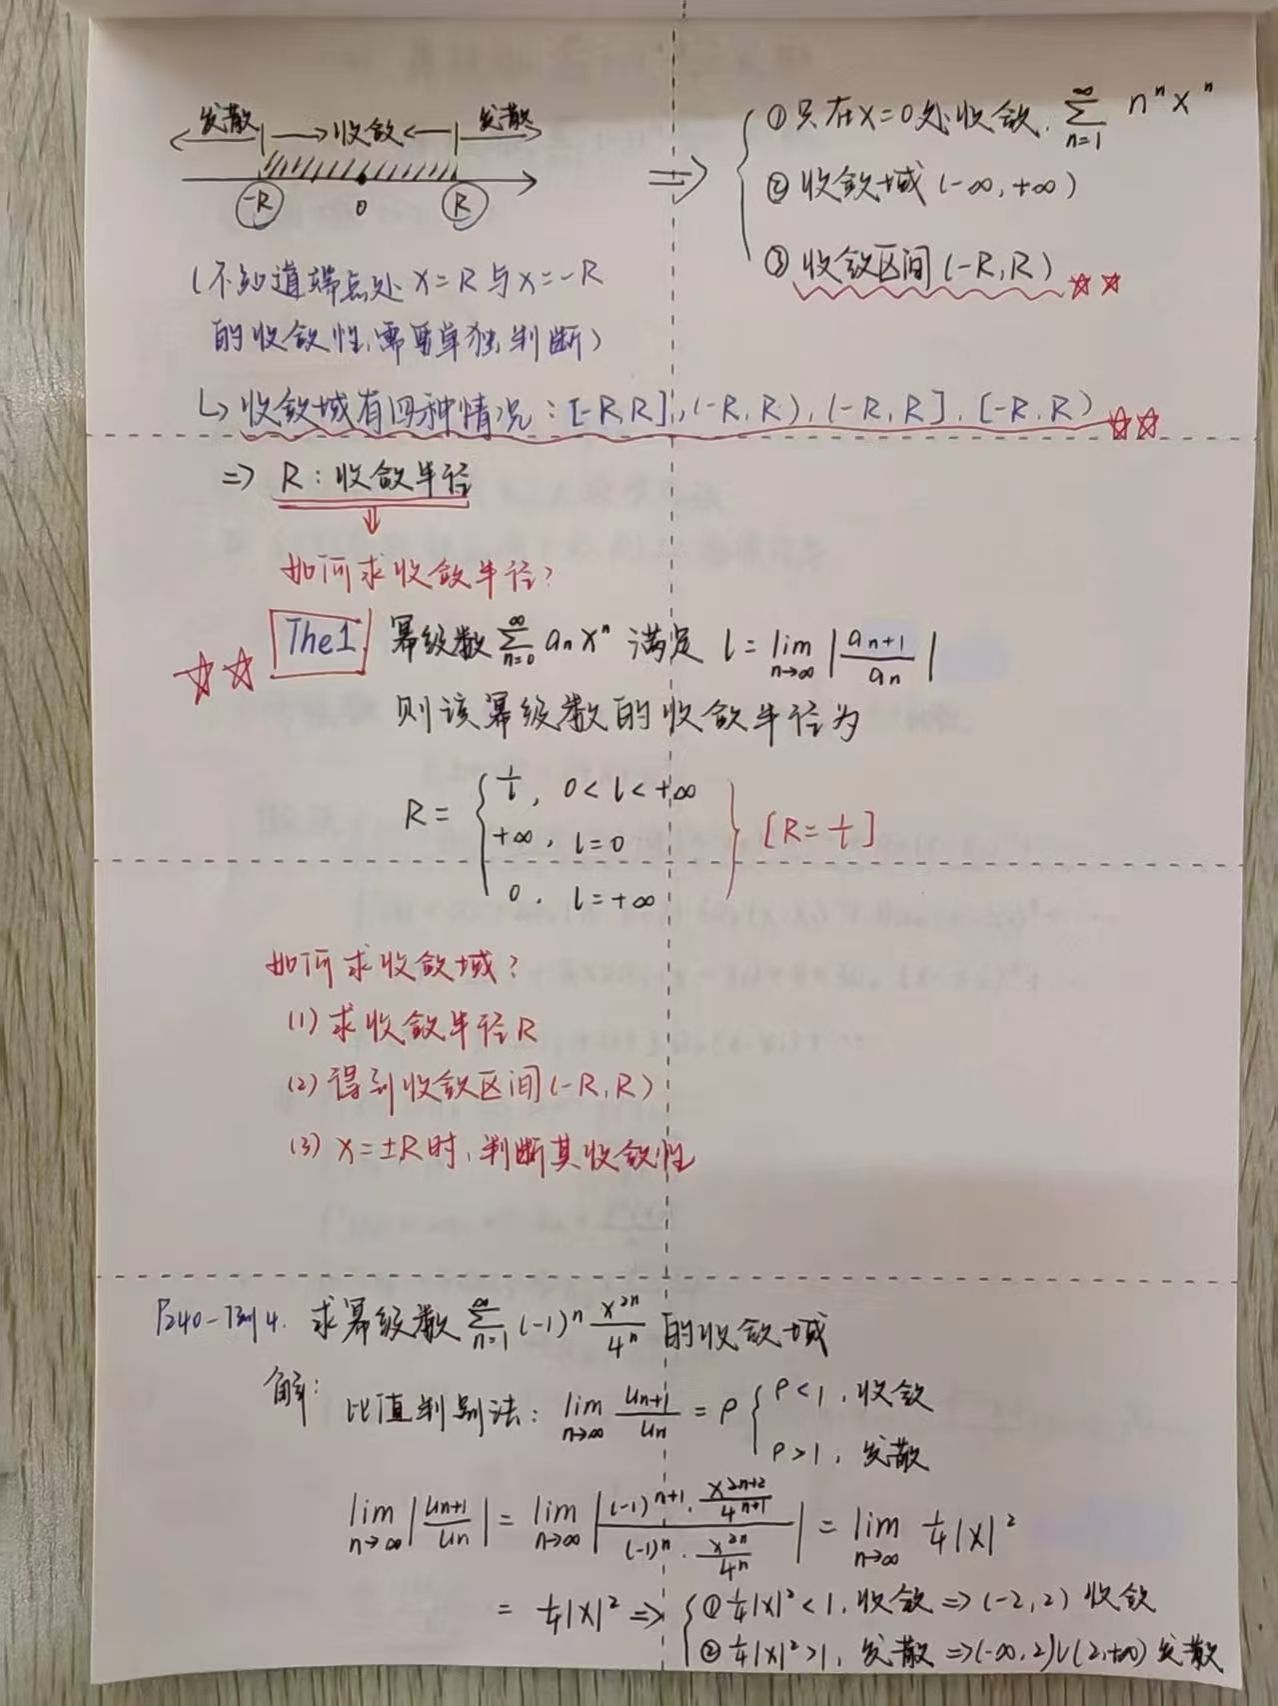 发散 →收敛← 发散
-R 0 R
⇒ ① 只在x=0处收敛. $\sum_{n=1}^{\infty} n^n x^n$
② 收敛域 (-∞, +∞)
③ 收敛区间 (-R, R) ☆☆
(不知道端点处 x=R 与 x=-R
的收敛性, 需要单独判断)
↳ 收敛域有四种情况: [-R,R], (-R,R), (-R,R], [-R,R) ☆☆
⇒ R: 收敛半径
⇓
如何求收敛半径?
☆☆ The1 幂级数 $\sum_{n=0}^{\infty} a_n x^n$ 满足 $l = \lim_{n\to\infty} \left|\frac{a_{n+1}}{a_n}\right|$
则该幂级数的收敛半径为
R = { $\frac{1}{l}$, 0<l<+∞
+∞, l=0 } [R=$\frac{1}{l}$]
0, l=+∞
如何求收敛域?
(1) 求收敛半径R
(2) 得到收敛区间(-R,R)
(3) x=±R时, 判断其收敛性
P240-例4. 求幂级数 $\sum_{n=1}^{\infty} (-1)^n \frac{x^{2n}}{4^n}$ 的收敛域
解: 比值判别法: $\lim_{n\to\infty} \frac{u_{n+1}}{u_n} = ρ$ { ρ<1, 收敛
ρ>1, 发散
$\lim_{n\to\infty} \left|\frac{u_{n+1}}{u_n}\right| = \lim_{n\to\infty} \left|\frac{(-1)^{n+1} \cdot \frac{x^{2n+2}}{4^{n+1}}}{(-1)^n \cdot \frac{x^{2n}}{4^n}}\right| = \lim_{n\to\infty} \frac{1}{4}|x|^2$
= $\frac{1}{4}|x|^2$ ⇒ { ① $\frac{1}{4}|x|^2<1$, 收敛 ⇒ (-2,2) 收敛
② $\frac{1}{4}|x|^2>1$, 发散 ⇒ (-∞,2)∪(2,+∞) 发散